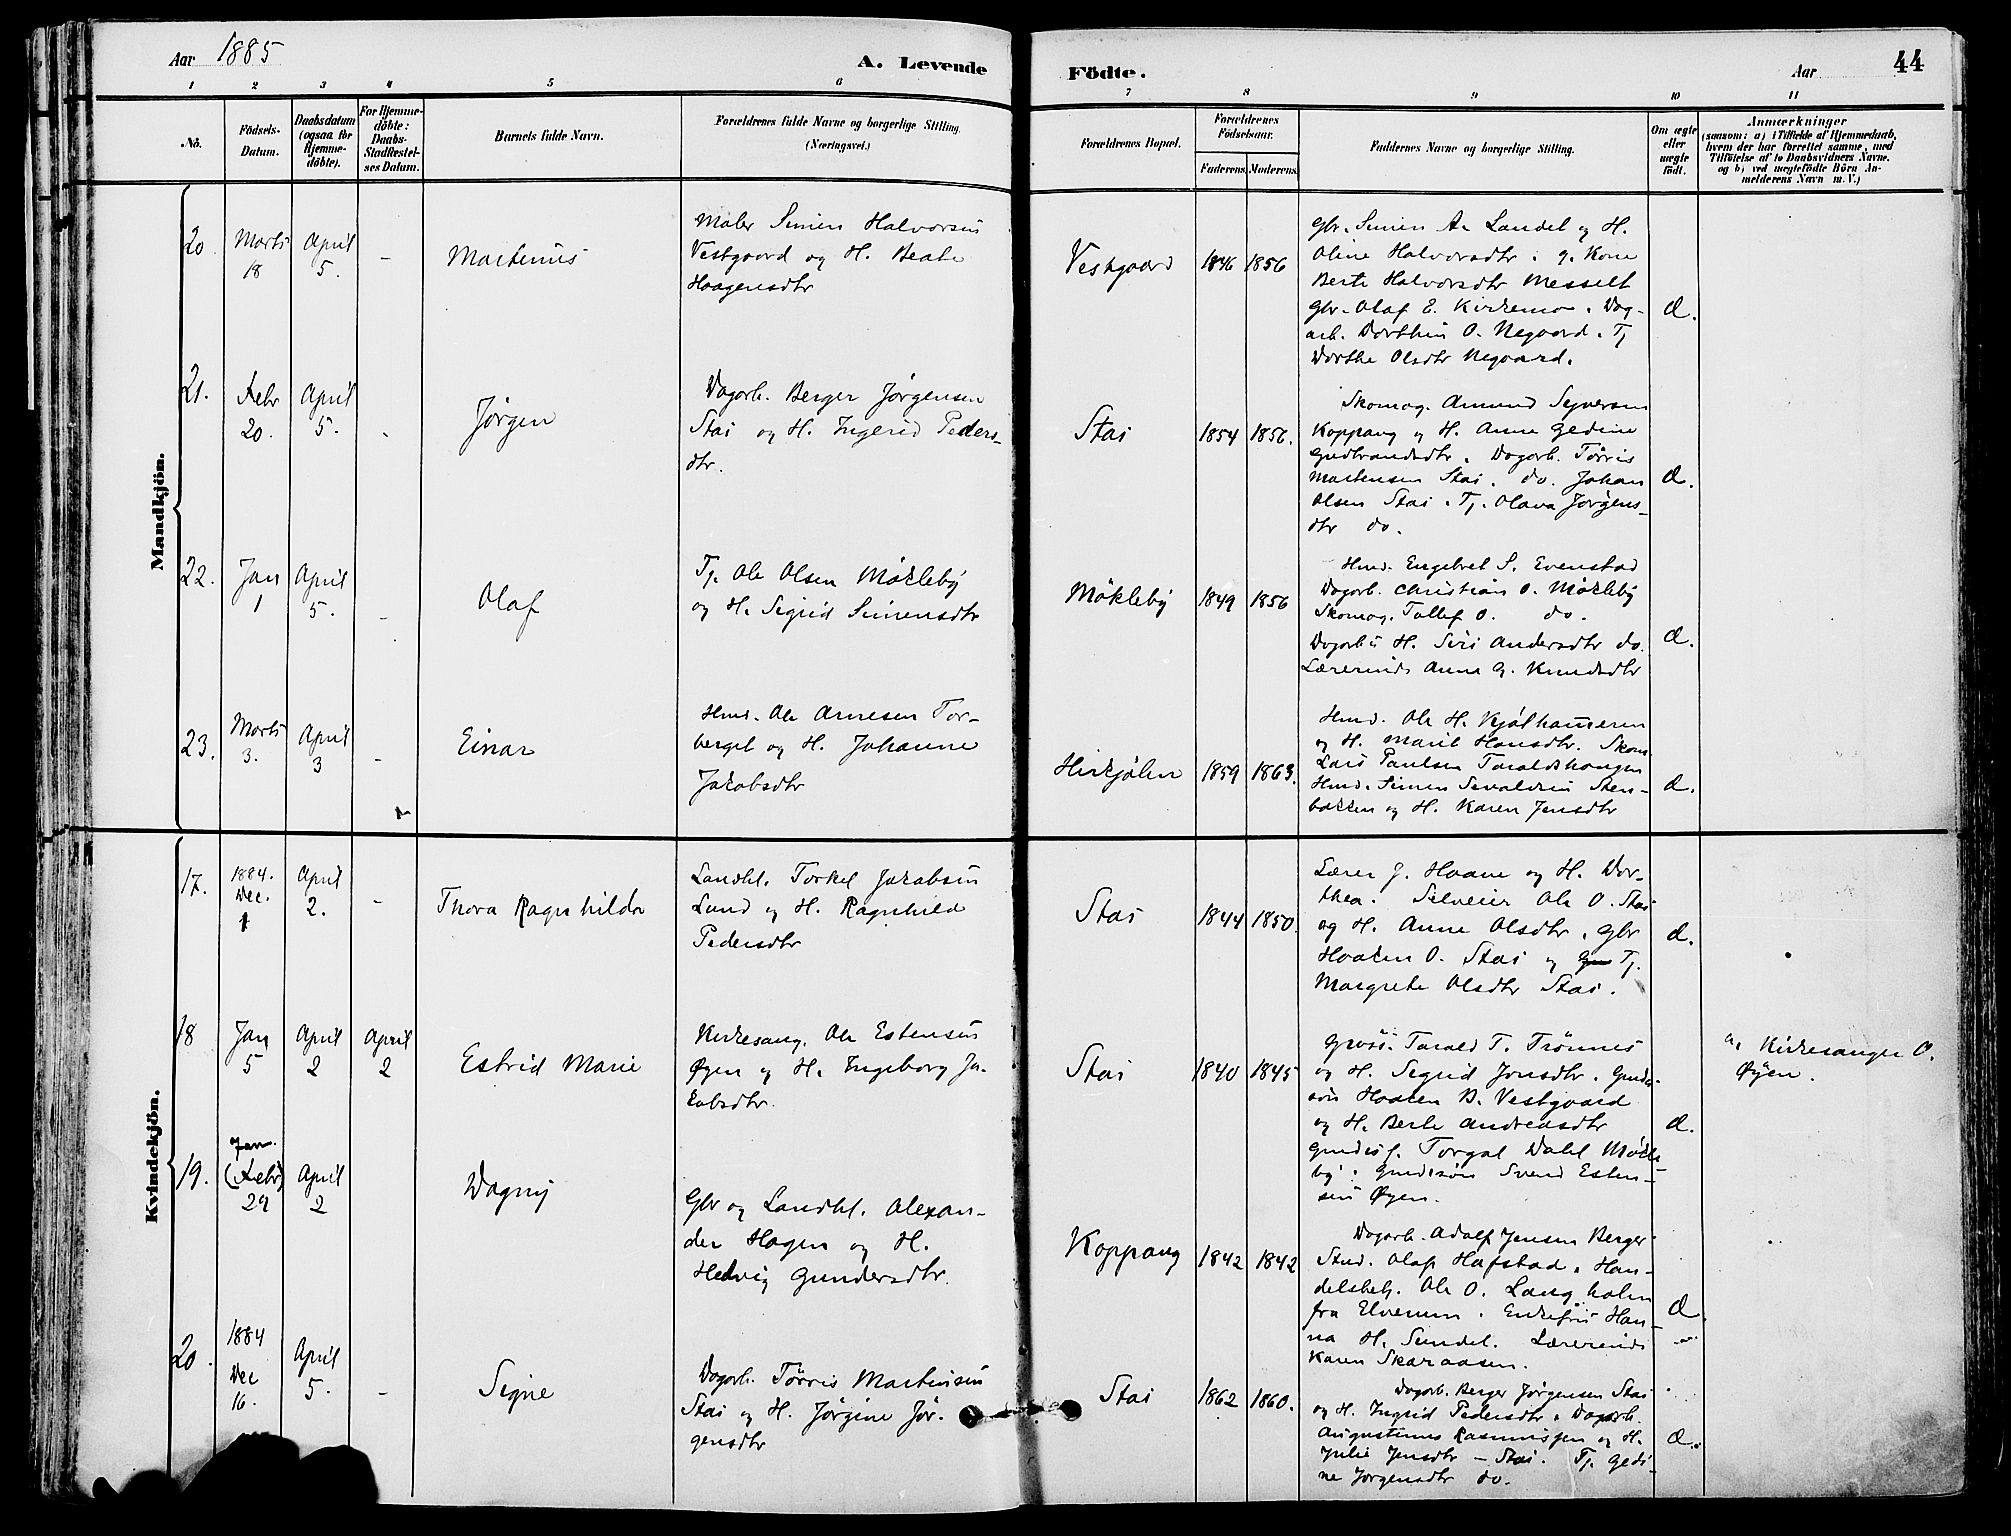 Aar 1885
A. Levende
Födte.
Aar
44
1 2 3 4 5 6 7 8 9 10 11
No.
Födsels-
Datum.
Daabsdatum
(ogsaa for
Hjemme-
döbte).
For Hjemme-
döbte:
Daabs-
Stadfæstel-
ses Datum.
Barnets fulde Navn.
Forældrenes fulde Navne og borgerlige Stilling.
(Næringsvei.)
Forældrenes Bopæl.
Forældrenes
Födselsaar.
Faderens. Moderens.
Faddernes Navne og borgerlige Stilling.
Om ægte
eller
uægte
födt.
Anmærkninger
(saasom: a) i Tilfælde af Hjemmedaab,
hvem der har forrettet samme, med
Tilföielse af to Daabsvidners Navne,
og b) ved uægtefödte Börn An-
melderens Navn m. V.)
Mandkjön.
20 Marts 18 April 5. - Martinus
Maler Simen Halvorsen
Vestgaard og H. Beate
Haagensdtr
Vestgaard 1846 1856
Gbr. Simen A. Landet og H.
Oline Halvorsdtr. g. Kone
Berte Halvorsdtr Messelt
Gbr. Olaf E. Kirkemo. Dag-
arb. Dorthin O. Negaard. Tj
Dorthe Olsdtr Negaard.
Æ.
21. Febr 20. April 5. Jörgen
Dagarb. Berger Jørgensen
Stai og H. Ingerid Peders-
dtr.
Stai 1854 1856.
Skomag. Amund Syversen
Koppang og H. Anne Gedine
Gudbrandsdtr. Dagarb. Tørris
Martensen Stai. do. Johan
Olsen Stai. Tj. Olava Jørgens-
dtr do.
Æ.
22. Jan 1 April 5. - Olaf
Tj. Ole Olsen Møkleby
og H. Sigrid Simensdtr
Møkleby 1849 1856
Hmd. Engebret S. Evenstad
Dagarb. Christian O. Møkleby
Skomag. Tollef O. do.
Dagarbs H. Siri Andersdtr do.
Lærerinde Anne G. Knudsdtr
Æ.
23. Marts 3. April 3 - Einar
Hmd. Ole Arnesen Tor-
berget og H. Johanne
Jakobsdtr
Hirkjølen 1859 1863.
Hmd. Ole H. Kjølhameren
og H. Marit Hansdtr. Skom
Lars Paulsen Taraldshaugen
Hmd. Simen Sevaldsen Sten-
bakken og H. Karen Jensdtr
Æ.
Kvindekjön.
17. 1884. Dec. 1 April 2. - Thora Ragnhilda
Landhl. Torkel Jakobsen
Lund og H. Ragnhild
Pedersdtr
Stai 1844 1850.
Lærer J. Haave og H. Dor-
thea. Selveier Ole O. Stai
og H. Anne Olsdtr. Gbr
Haaken O. Stai og Tj.
Margrete Olsdtr Stai.
Æ.
18 Jan 5 April 2 April 2 Estrid Marie
Kirkesang. Ole Estensen
Øyen og H. Ingeborg Ja-
kobsdtr.
Stai 1840 1845
Tarald T. Trønnes
og H. Sigrid Jonsdtr. Gaard-
Haaken B. Vestgaard
og H. Berte Andreasdtr
Torgal Dahl Møkle-
by. Svend Esten-
sen Øyen.
Æ.
a, Kirkesanger O.
Øyen.
19. Jan. (Febr) 29 April 2 Dagny
Gbr og Landhl. Alexan-
der Hagen og H.
Hedvig Gundersdtr.
Koppang 1842 1842
Dagarb. Adolf Jensen Berger
Stud. Olaf Hafstad. Han-
delsbetj. Ole O. Langholm
fra Elverum. Enkefru Han-
na H. Sundet. Lærerinde
Karen Skaraasen.
Æ
20. 1884 Dec 16. April 5. - Signe
Dagarb. Tørris Martinsen
Stai og H. Jørgine Jør-
gensdtr
Stai 1862 1860.
Dagarb. Berger Jørgensen Stai
og H. Ingrid Pedersdtr. Dagarb.
Augustinus Rasmussen og H.
Julie Jensdtr - Stai. Tj. Gedi-
ne Jørgensdtr do.
Æ.